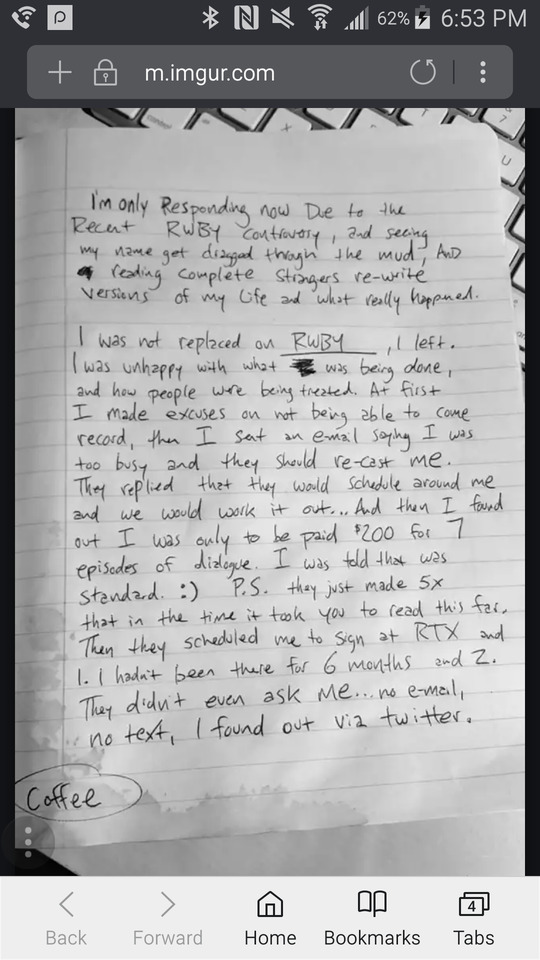 62% 6:53 PM
m.imgur.com
I'm only Responding now Due to the
Recent RWBY controvory, and seeing
my name get dragged through the mud, AND
reading complete strangers re-write
versions of my life and what really happened.
I was not replaced on RWBY, I left.
I was unhappy with what was being done,
and how people were being treated. At first
I made excuses on not being able to come
record, then I sent an e-mail saying I was
too busy and they should re-cast me.
They replied that they would schedule around me
and we would work it out... And then I found
out I was only to be paid $200 for 7
episodes of dialogue. I was told that was
standard. :) P.S. they just made 5x
that in the time it took you to read this far.
Then they scheduled me to sign at RTX and
1. I hadn't been there for 6 months and 2.
They didn't even ask me... no e-mail,
no text, I found out via twitter.
Coffee
Back Forward Home Bookmarks 4 Tabs